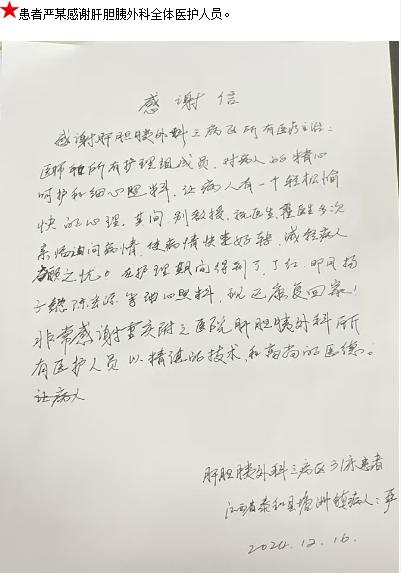 ★患者严某感谢肝胆胰外科全体医护人员。
感谢信
感谢肝胆胰外科三病区所有医疗主治：
医师和所有护理组成员，对病人的精心
呵护和细心照料，让病人有一个轻松愉
快的心理。其间，别教授，祝医生，
亲临询问病情，使病情快速好转，减轻病人
之忧。在护理期间得到了，丁红，
等细心照料，现已康复回家！
非常感谢重庆附二医院肝胆胰外科所
有医护人员以精湛的技术和高尚的医德。
让病人
肝胆胰外科三病区31床患者
江西省泰和县塘洲镇病人：严
2024.12.16.